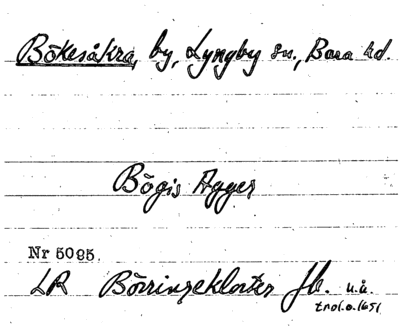 Bökesåkra, by, Lyngby sn., Bara hd.
Bögis Agger
Nr 5095.
LR Börringekloster Jb. u.å.
trol.o.1651